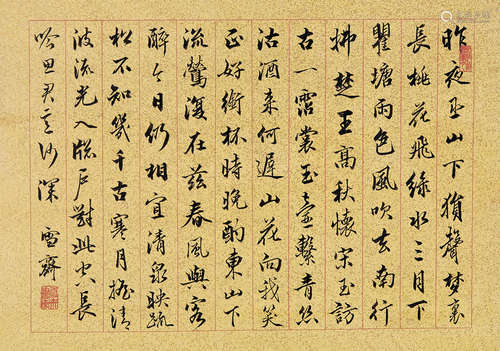 昨夜巫山下猿聲梦裏
長桃花飛綠水三月下
瞿塘雨色風吹去南行
拂楚王高秋懷宋玉訪
古一霑裳玉壺繫青絲
沽酒来何遲山花向我笑
正好銜杯時晚酌東山下
流鶯復在兹春風與客
醉今日仍相宜清泉映疏
松不知幾千古寒月摇清
波流光入牕户對此空長
吟思君意何深 雪齋